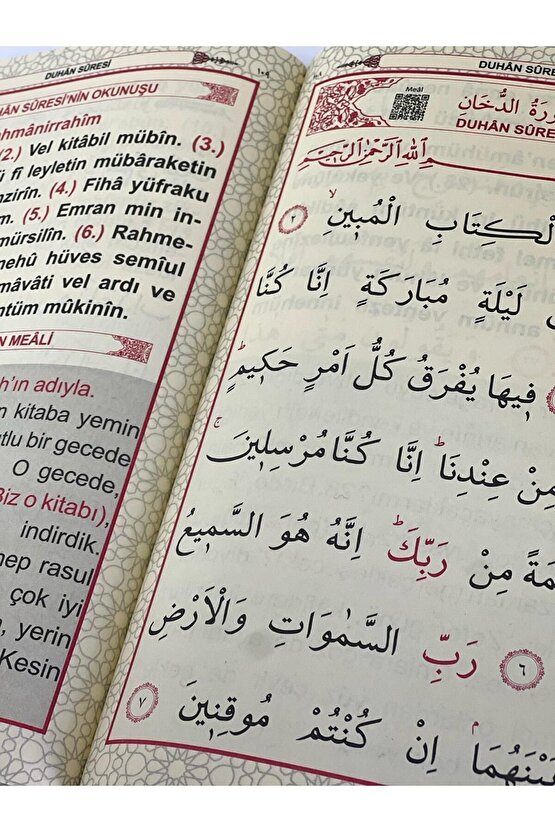 DUHÂN SÛRESİ
١٠٩
SÛRESİ'NİN OKUNUŞU
(2.) Vel kitâbil mübîn. (3.)
fî leyletin mübâraketin
(4.) Fîhâ yüfraku
(5.) Emran min in-
mürsilîn. (6.) Rahme-
hüves semîul
vel ardı ve
mûkinîn.
MEÂLİ
adıyla.
kitaba yemin
bir gecede
O gecede,
o kitabı),
indirdik.
rasul
çok iyi
yerin
Kesin
DUHÂN
Meâl
الدُّخَانِ
DUHÂN
اللّٰهِ الرَّحْمٰنِ الرَّحِيمِ
الْكِتَابِ الْمُبِينِ ٢
لَيْلَةٍ مُبَارَكَةٍ اِنَّا كُنَّا
فِيهَا يُفْرَقُ كُلُّ اَمْرٍ حَكِيمٍ
مِنْ عِنْدِنَا اِنَّا كُنَّا مُرْسِلِينَ
مِنْ رَبِّكَ اِنَّهُ هُوَ السَّمِيعُ
٦ رَبِّ السَّمٰوَاتِ وَالْاَرْضِ
اِنْ كُنْتُمْ مُوقِنِينَ ٧